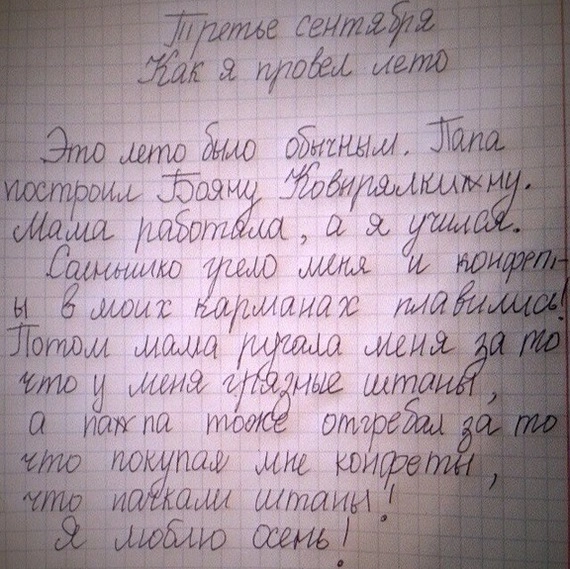 Третье сентября
Как я провел лето
Это лето было обычным. Папа
построил Бояну Ковырялкину.
Мама работала, а я учился.
Солнышко грело меня и конфет-
ы в моих карманах плавились!
Потом мама ругала меня за то
что у меня грязные штаны,
а папа тоже отгребал за то
что покупал мне конфеты,
что пачкали штаны!
Я люблю осень!